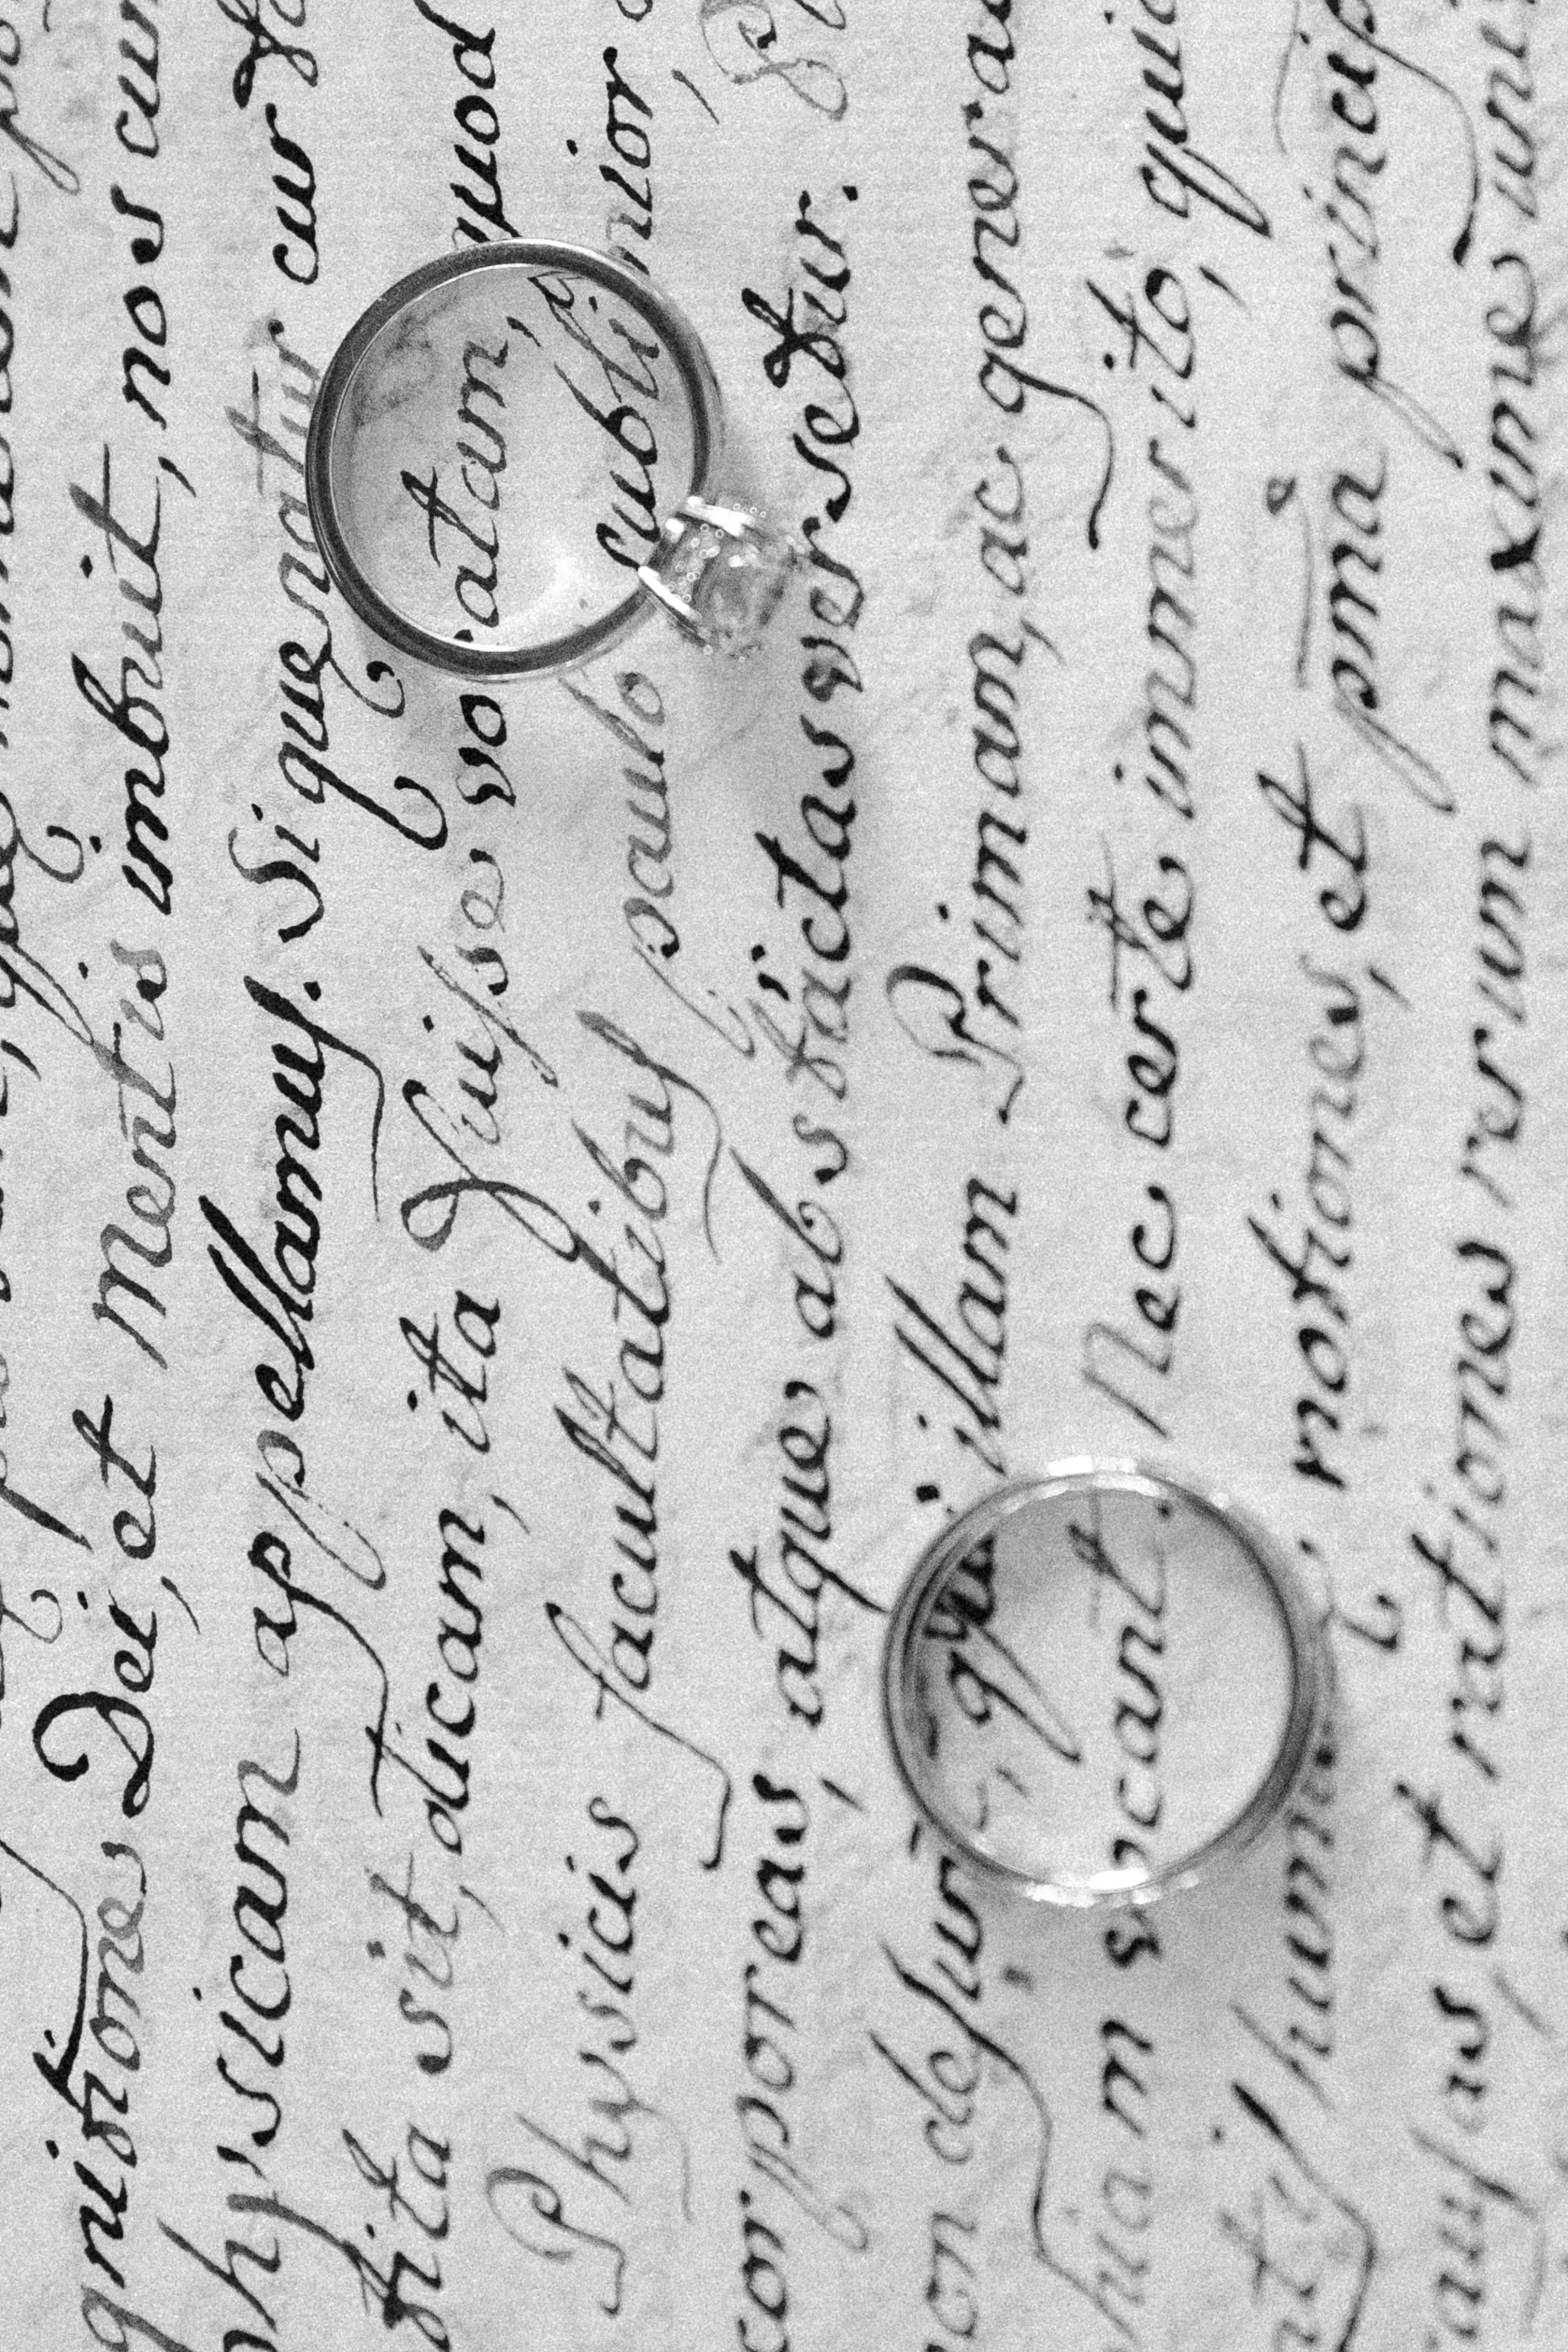 gnitiones Dei, et Mentis imbuit, nos cur
hysicam appellamus. Si queratur cur
tita sit, dicam, ita fuisse vocatam, quod
Physicis facultatibus paulo sublimior,
corporeas, atque abstractas versetur.
on desunt, qui illam Primam, ac genera
hiam vocant. Nec certe immerito, quic
notiones, et pma princip
ausas, et rationes rerum maxime uni